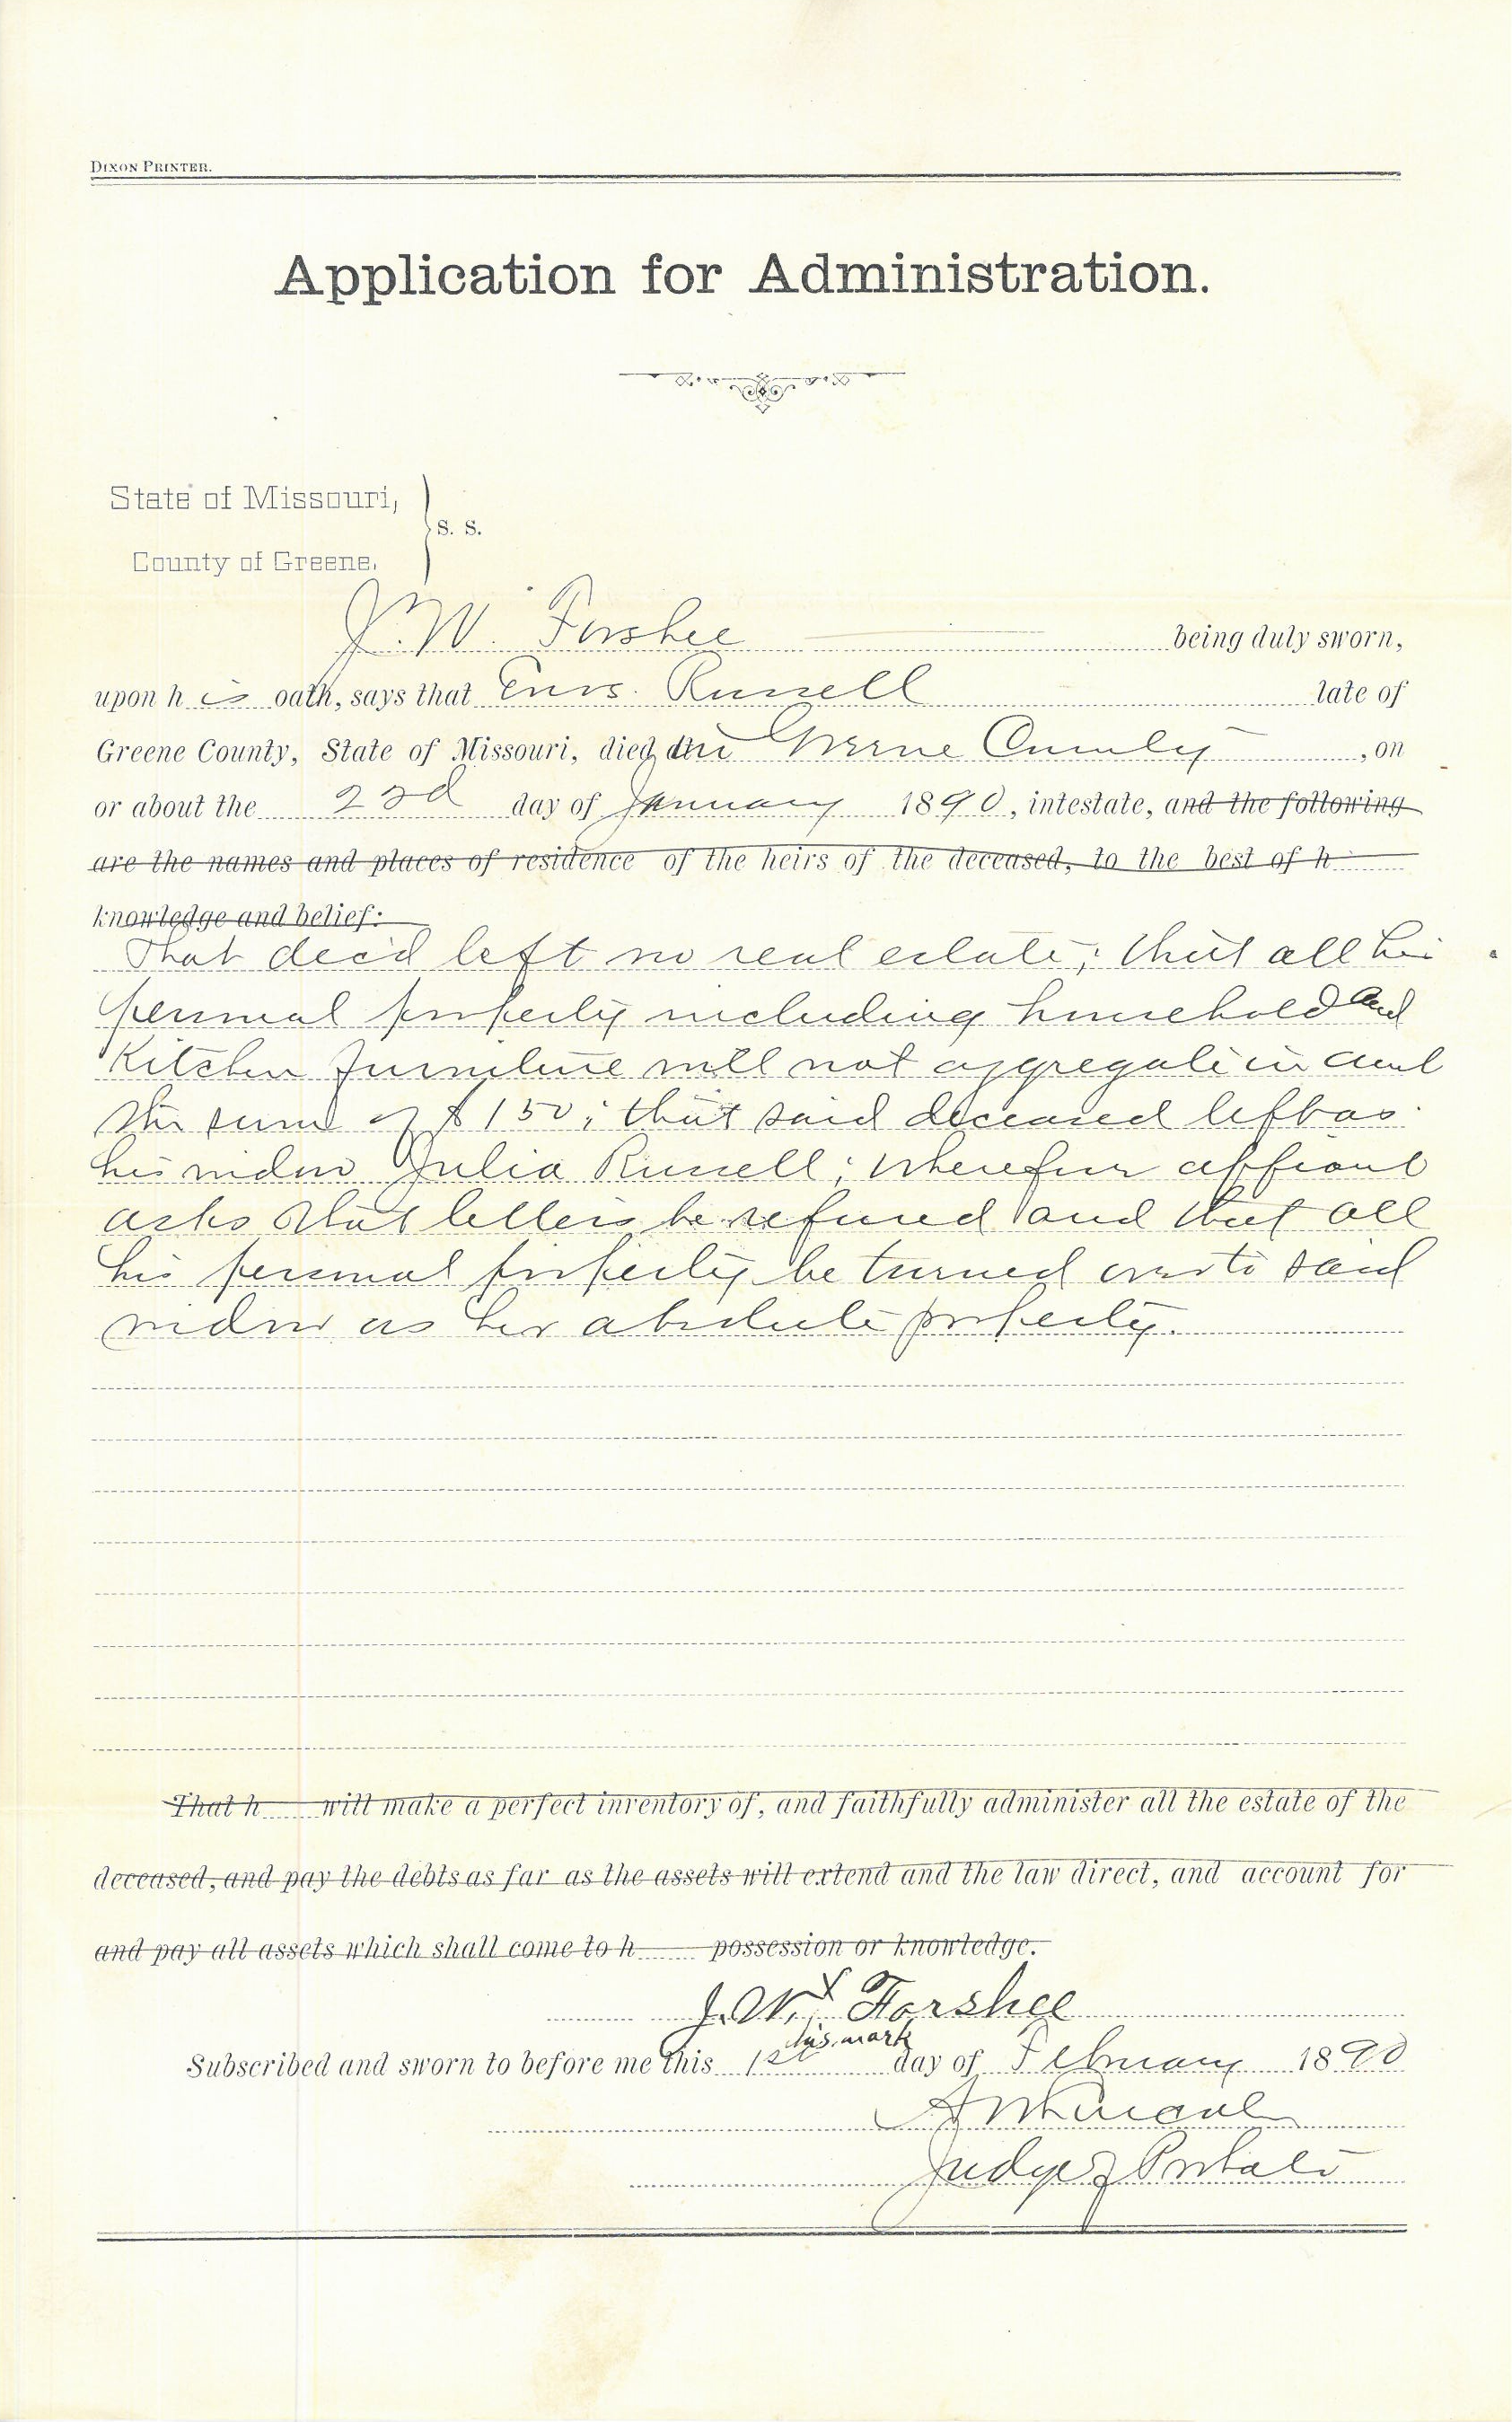 DIXON PRINTER.
Application for Administration.
State of Missouri,
County of Greene.
S. S.
J. W. Forshee being duly sworn,
upon his oath, says that Enos. Russell late of
Greene County, State of Missouri, died in Greene County, on
or about the 23d day of January 1890, intestate, and the following
are the names and places of residence of the heirs of the deceased, to the best of h
knowledge and belief:
That dec'd left no real estate; that all his
personal property including household and
Kitchen furniture will not aggregate in amt
the sum of $150; that said deceased left as
his widow Julia Russell; Wherefore affiant
asks that letters be refused and that all
his personal property be turned over to said
widow as her absolute property.
That h will make a perfect inventory of, and faithfully administer all the estate of the
deceased, and pay the debts as far as the assets will extend and the law direct, and account for
and pay all assets which shall come to h possession or knowledge.
J. W. x Forshee
his mark
Subscribed and sworn to before me this 1st day of February 1890
Judge of Probate